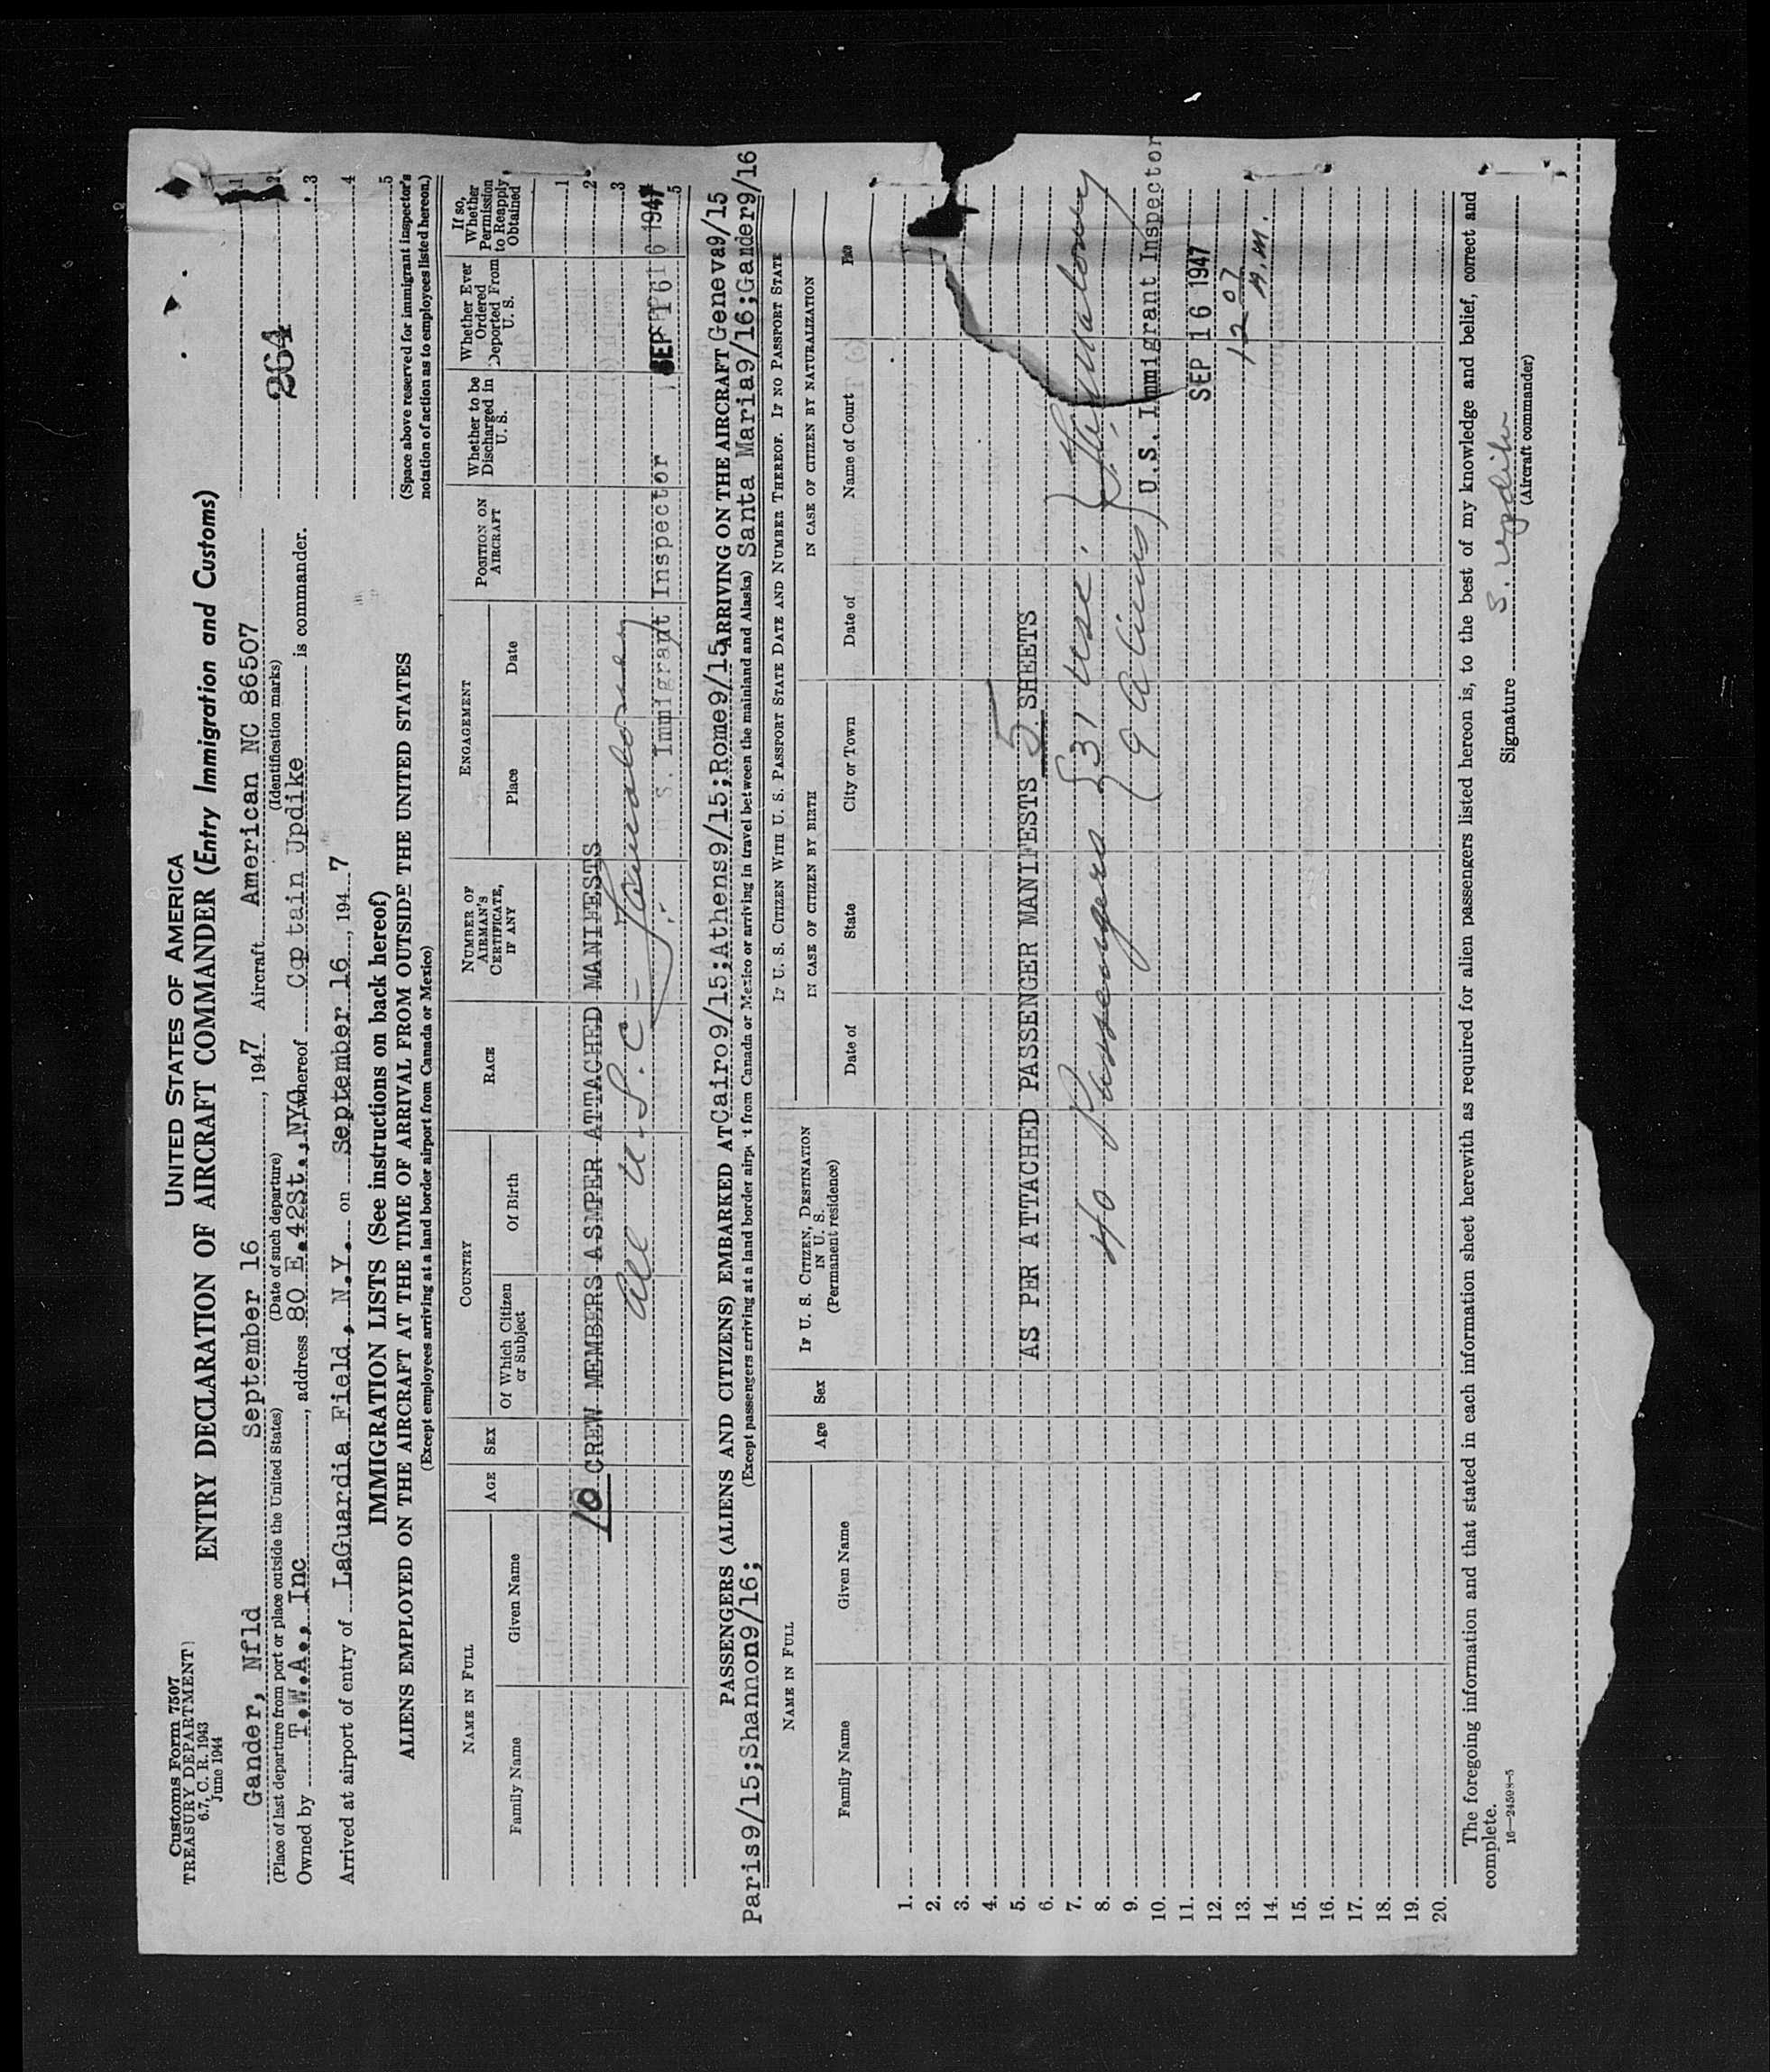 Customs Form 7507
TREASURY DEPARTMENT
6.7, C. R. 1943
June 1944
UNITED STATES OF AMERICA
ENTRY DECLARATION OF AIRCRAFT COMMANDER (Entry Immigration and Customs)
Gander, Nfld September 16, 1947 Aircraft American NC 86507
(Place of last departure from port or place outside the United States) (Date of such departure) (Identification marks)
Owned by T.W.A., Inc, address 80 E.42St., NYC, whereof Captain Updike is commander.
Arrived at airport of entry of LaGuardia Field, N.Y. on September 16, 1947
1
264 2
3
4
5
(Space above reserved for immigrant inspector's
notation of action as to employees listed hereon.)
IMMIGRATION LISTS (See instructions on back hereof)
ALIENS EMPLOYED ON THE AIRCRAFT AT THE TIME OF ARRIVAL FROM OUTSIDE THE UNITED STATES
(Except employees arriving at a land border airport from Canada or Mexico)
NAME IN FULL
Family Name
Given Name
AGE
SEX
COUNTRY
Of Which Citizen
or Subject
Of Birth
RACE
NUMBER OF
AIRMAN'S
CERTIFICATE,
IF ANY
ENGAGEMENT
Place
Date
POSITION ON
AIRCRAFT
Whether to be
Discharged in
U. S.
Whether Ever
Ordered
Deported From
U. S.
If so,
Whether
Permission
to Reapply
Obtained
1
10 CREW MEMBERS AS PER ATTACHED MANIFESTS 2
All U.S.C. 3
U. S. Immigrant Inspector SEP 16 1947
5
PASSENGERS (ALIENS AND CITIZENS) EMBARKED AT Cairo9/15;Athens9/15;Rome9/15 ARRIVING ON THE AIRCRAFT Geneva9/15
Paris9/15;Shannon9/16; (Except passengers arriving at a land border airport from Canada or Mexico or arriving in travel between the mainland and Alaska) Santa Maria9/16;Gander9/16
NAME IN FULL
Family Name
Given Name
Age
Sex
IF U. S. CITIZEN, DESTINATION
IN U. S.
(Permanent residence)
IF U. S. CITIZEN WITH U. S. PASSPORT STATE DATE AND NUMBER THEREOF. IF NO PASSPORT STATE
IN CASE OF CITIZEN BY BIRTH
Date of
State
City or Town
IN CASE OF CITIZEN BY NATURALIZATION
Date of
Name of Court
1.
2.
3.
4.
5. AS PER ATTACHED PASSENGER MANIFESTS 5 SHEETS
6.
7. 31 USC
8. 40 Passengers
9. 9 Aliens
10. U.S. Immigrant Inspector
11. SEP 16 1947
12. 12 07
13.
14.
15.
16.
17.
18.
19.
20.
The foregoing information and that stated in each information sheet herewith as required for alien passengers listed hereon is, to the best of my knowledge and belief, correct and
complete.
16—24598-5
Signature S. Updike
(Aircraft commander)